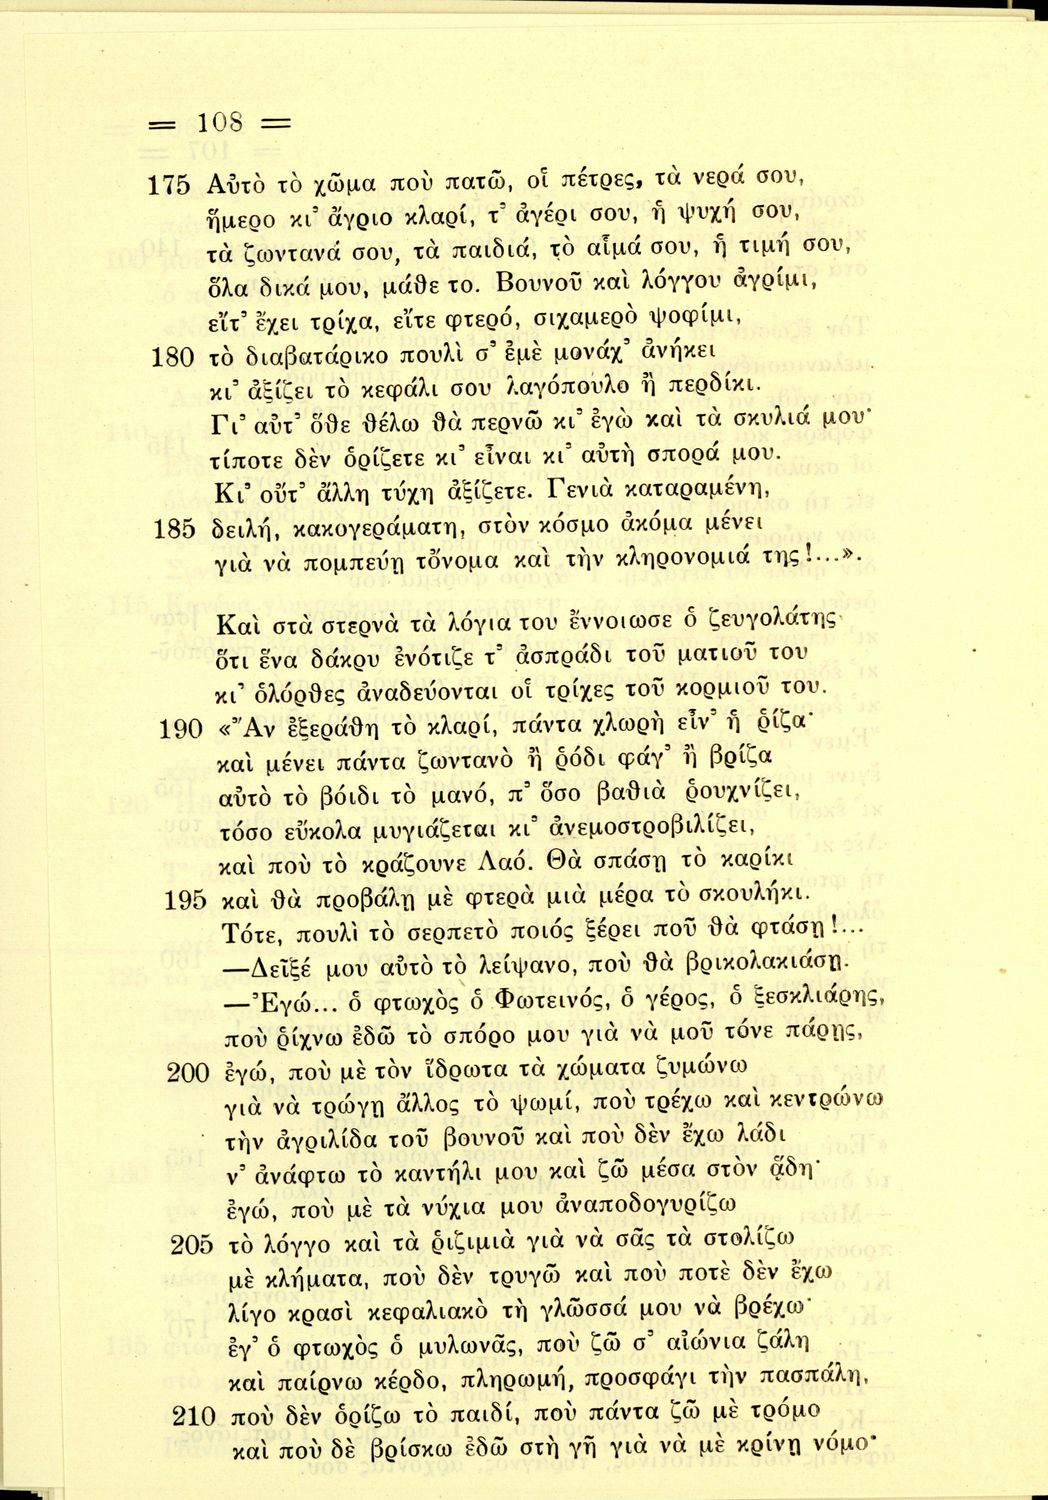 = 108 =
175 Αὐτὸ τὸ χῶμα ποὺ πατῶ, οἱ πέτρες, τὰ νερά σου,
ἥμερο κι᾽ ἄγριο κλαρί, τ᾽ ἀγέρι σου, ἡ ψυχή σου,
τὰ ζωντανά σου, τὰ παιδιά, τὸ αἷμά σου, ἡ τιμή σου,
ὅλα δικά μου, μάθε το. Βουνοῦ καὶ λόγγου ἀγρίμι,
εἴτ᾽ ἔχει τρίχα, εἴτε φτερό, σιχαμερὸ ψοφίμι,
180 τὸ διαβατάρικο πουλὶ σ᾽ ἐμὲ μονάχ᾽ ἀνήκει
κι᾽ ἀξίζει τὸ κεφάλι σου λαγόπουλο ἢ περδίκι.
Γι᾽ αὐτ᾽ ὅθε θέλω θὰ περνῶ κι᾽ ἐγὼ καὶ τὰ σκυλιά μου·
τίποτε δὲν ὁρίζετε κι᾽ εἶναι κι᾽ αὐτὴ σπορά μου.
Κι᾽ οὔτ᾽ ἄλλη τύχη ἀξίζετε. Γενιὰ καταραμένη,
185 δειλή, κακογεράματη, στὸν κόσμο ἀκόμα μένει
γιὰ νὰ πομπεύῃ τὄνομα καὶ τὴν κληρονομιά της!...».
Καὶ στὰ στερνὰ τὰ λόγια του ἔννοιωσε ὁ ζευγολάτης
ὅτι ἕνα δάκρυ ἐνότιζε τ᾽ ἀσπράδι τοῦ ματιοῦ του
κι᾽ ὁλόρθες ἀναδεύονται οἱ τρίχες τοῦ κορμιοῦ του.
190 «Ἂν ἐξεράθη τὸ κλαρί, πάντα χλωρὴ εἶν᾽ ἡ ῥίζα·
καὶ μένει πάντα ζωντανὸ ἢ ῥόδι φάγ᾽ ἢ βρίζα
αὐτὸ τὸ βόιδι τὸ μανό, π᾽ ὅσο βαθιὰ ῥουχνίζει,
τόσο εὔκολα μυγιάζεται κι᾽ ἀνεμοστροβιλίζει,
καὶ ποὺ τὸ κράζουνε Λαό. Θὰ σπάσῃ τὸ καρίκι
195 καὶ θὰ προβάλῃ μὲ φτερὰ μιὰ μέρα τὸ σκουλήκι.
Τότε, πουλὶ τὸ σερπετὸ ποιός ξέρει ποῦ θὰ φτάσῃ!...
—Δεῖξέ μου αὐτὸ τὸ λείψανο, ποὺ θὰ βρικολακιάσῃ.
—Ἐγώ... ὁ φτωχὸς ὁ Φωτεινός, ὁ γέρος, ὁ ξεσκλιάρης,
ποὺ ῥίχνω ἐδῶ τὸ σπόρο μου γιὰ νὰ μοῦ τόνε πάρῃς,
200 ἐγώ, ποὺ μὲ τὸν ἵδρωτα τὰ χώματα ζυμώνω
γιὰ νὰ τρώγῃ ἄλλος τὸ ψωμί, ποὺ τρέχω καὶ κεντρώνω
τὴν ἀγριλίδα τοῦ βουνοῦ καὶ ποὺ δὲν ἔχω λάδι
ν᾽ ἀνάφτω τὸ καντήλι μου καὶ ζῶ μέσα στὸν ᾅδη·
ἐγώ, ποὺ μὲ τὰ νύχια μου ἀναποδογυρίζω
205 τὸ λόγγο καὶ τὰ ῥιζιμιὰ γιὰ νὰ σᾶς τὰ στολίζω
μὲ κλήματα, ποὺ δὲν τρυγῶ καὶ ποὺ ποτὲ δὲν ἔχω
λίγο κρασὶ κεφαλιακὸ τὴ γλῶσσά μου νὰ βρέχω·
ἐγ᾽ ὁ φτωχὸς ὁ μυλωνᾶς, ποὺ ζῶ σ᾽ αἰώνια ζάλη
καὶ παίρνω κέρδο, πληρωμή, προσφάγι τὴν πασπάλη,
210 ποὺ δὲν ὁρίζω τὸ παιδί, ποὺ πάντα ζῶ μὲ τρόμο
καὶ ποὺ δὲ βρίσκω ἐδῶ στὴ γῆ γιὰ νὰ μὲ κρίνῃ νόμο·